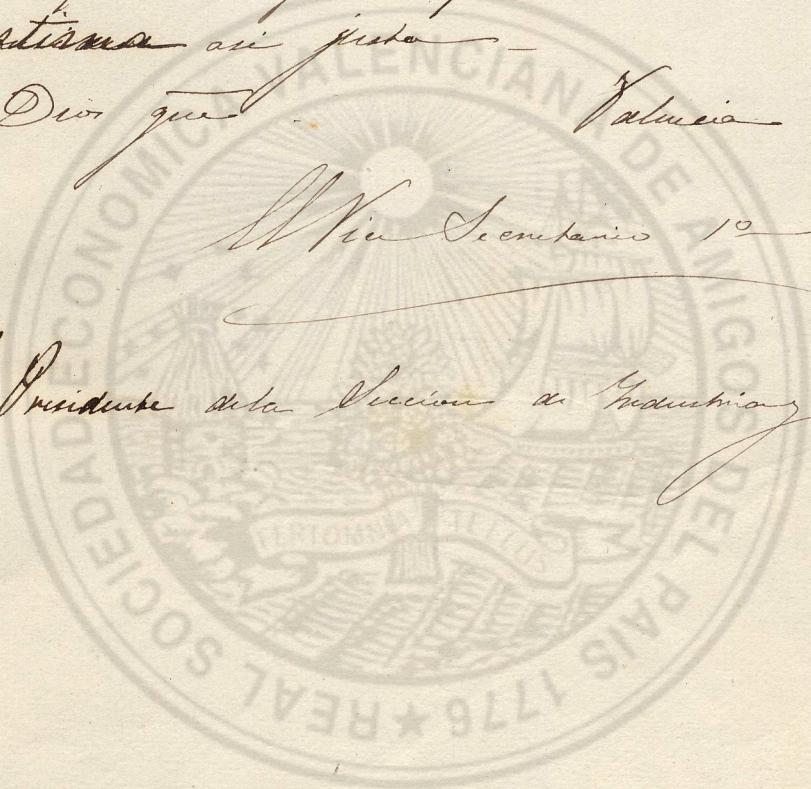 asi justa
Dios gue Valencia
El Vice Secretario 1º
Presidente dela Seccion de Industria y
REAL SOCIEDAD ECONOMICA VALENCIANA DE AMIGOS DEL PAIS 1776 ★
FERT OMNIA TELLUS